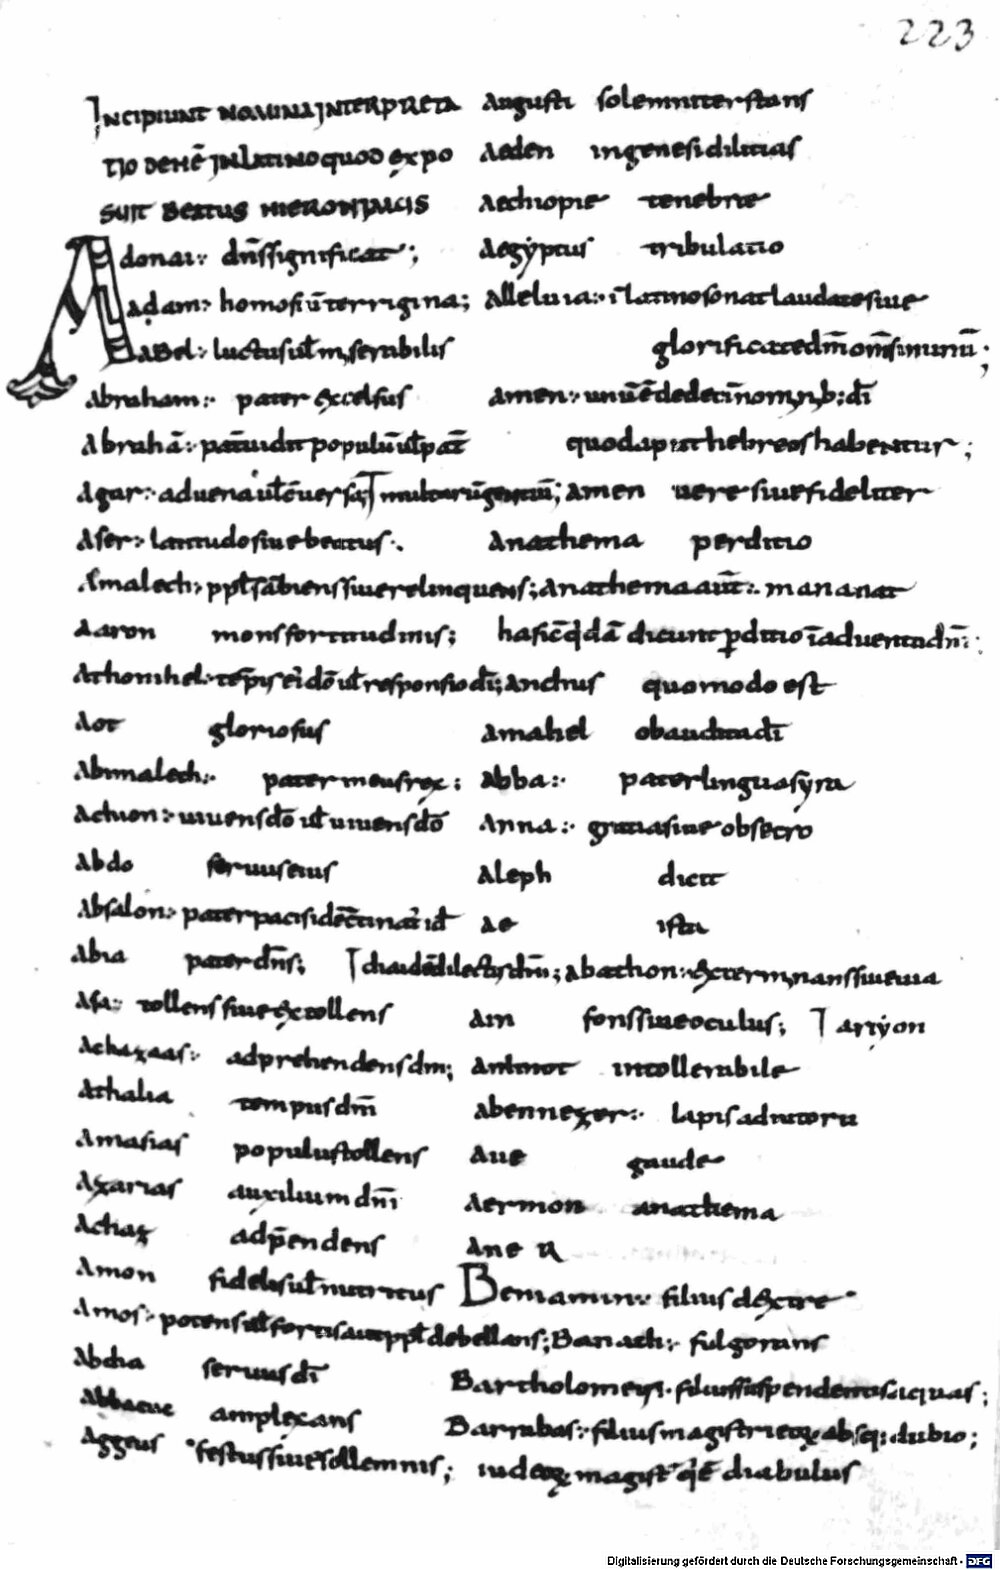 223
INCIPIUNT NOMINA INTERPRETA
TIO DEHE͞ IN LATINO QUOD EXPO
SUIT BEATUS HIERONIMUS
Adonai: dn͞s significat;
Adam: homo siu͞ terrigina;
Abel: luctus ul͞ miserabilis
Abraham: pater excelsus
Abrahā: pat͞ uidit populū ul͞ pat͞
Agar: aduena ul͞ cūersa;
Aser: latitudo siue beatus.
Amalech: ppl͞s lābiens siue relinquens;
Aaron mons fortitudinis;
Athonihel: tēpis ei dō ul͞ responsio di͞;
Aot gloriosus
Abimalech: pater meus rex;
Achion: uiuens dō ul͞ uiuens dō
Abdo seruus eius
Absalon: pater pacis id
Abia pater dn͞s;
Asa: tollens siue extollens
Achazaas: adprehendens dm͞;
Athalia tempus dm͞
Amasias populus tollens
Azarias auxilium dni͞
Achaz adp͞endens
Amon fidelis ul͞ nutritus
Amos: potens ul͞ fortis aut ppl͞ debellans;
Abdia seruus di͞
Abbacuc amplexans
Aggeus festus siue sollemnis;
Augusti solemniter stans
Aeden in genesi dilitias
Aethiopie tenebrae
Aegyptus tribulatio
Alleluia: ī latino sonat laudate siue
glorificate dm͞ om͞s
Amen: unū ē de decī nominib: di͞
quod aput hebreos habentur;
multarū gentiū; Amen uere siue fideliter
Anathema perditio
Anathema aut͞: marianat
ha sic q͞dā dicunt p͞ditio ī aduentu dn͞i:
Anchus quomodo est
Amahel obaudit di͞
Abba: pater lingua syra
Anna: gratia siue obsecro
Aleph dicit
Ae ista
dilectus dm͞; Abathon: exterminans siue
Ain fons siue oculus; ariyon
intollerabile
Abennezer: lapis adiutorii
Aue gaude
Aermon anathema
Beniamin: filius dextre
Banach: fulgorans
Bartholomeus: filius suspendentis aquas;
Barrabas: filius magistri eoꝝ absq; dubio;
iudeoꝝ magist͞ q͞ ē diabulus
Digitalisierung gefördert durch die Deutsche Forschungsgemeinschaft - DFG